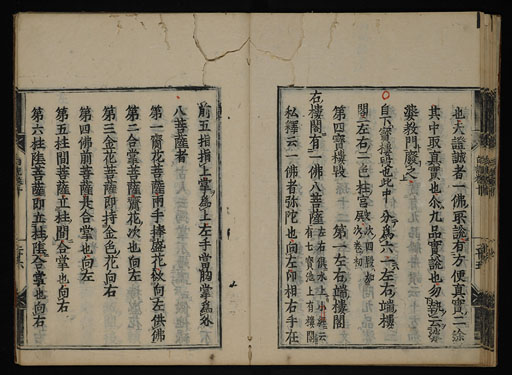 也夫證誠者一佛取說有方便真實二途
其中取真實也尒九品實說也勿執云染
樂教門廢之
自下寶樓段也此中分為六一左右端樓
閣二左右二色柱宮殿
第四寶樓段 第一左右端樓閣
右樓閣有一佛八菩薩
私釋云一佛者弥陀也向左印相右手在
前五指指上掌為上左手當胸掌為外
八菩薩者
第一寶花菩薩兩手捧盛花欲向左供佛
第二合掌菩薩花次也向左
第三金花菩薩即持金色花向右
第四佛前菩薩共合掌也向左
第五柱間菩薩立柱間合掌也向右
第六柱陰菩薩即立柱陰合掌也向右